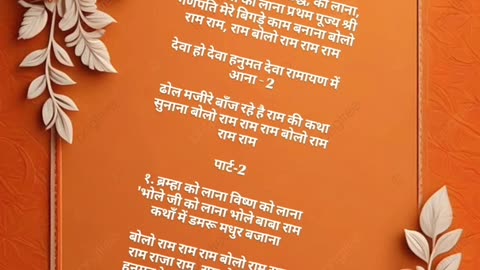 को लाना प्रथम पूज्य श्री
गणपति मेरे बिगड़े काम बनाना बोलो
राम राम, राम बोलो राम राम राम
देवा हो देवा हनुमत देवा रामायण में
आना - 2
ढोल मजीरे बाँज रहे है राम की कथा
सुनाना बोलो राम राम राम बोलो राम
राम राम
पार्ट-2
१. ब्रम्हा को लाना विष्ण को लाना
'भोले जी को लाना भोले बाबा राम
कथाँ में डमरू मधुर बजाना
बोलो राम राम राम बोलो राम
राम राजा राम